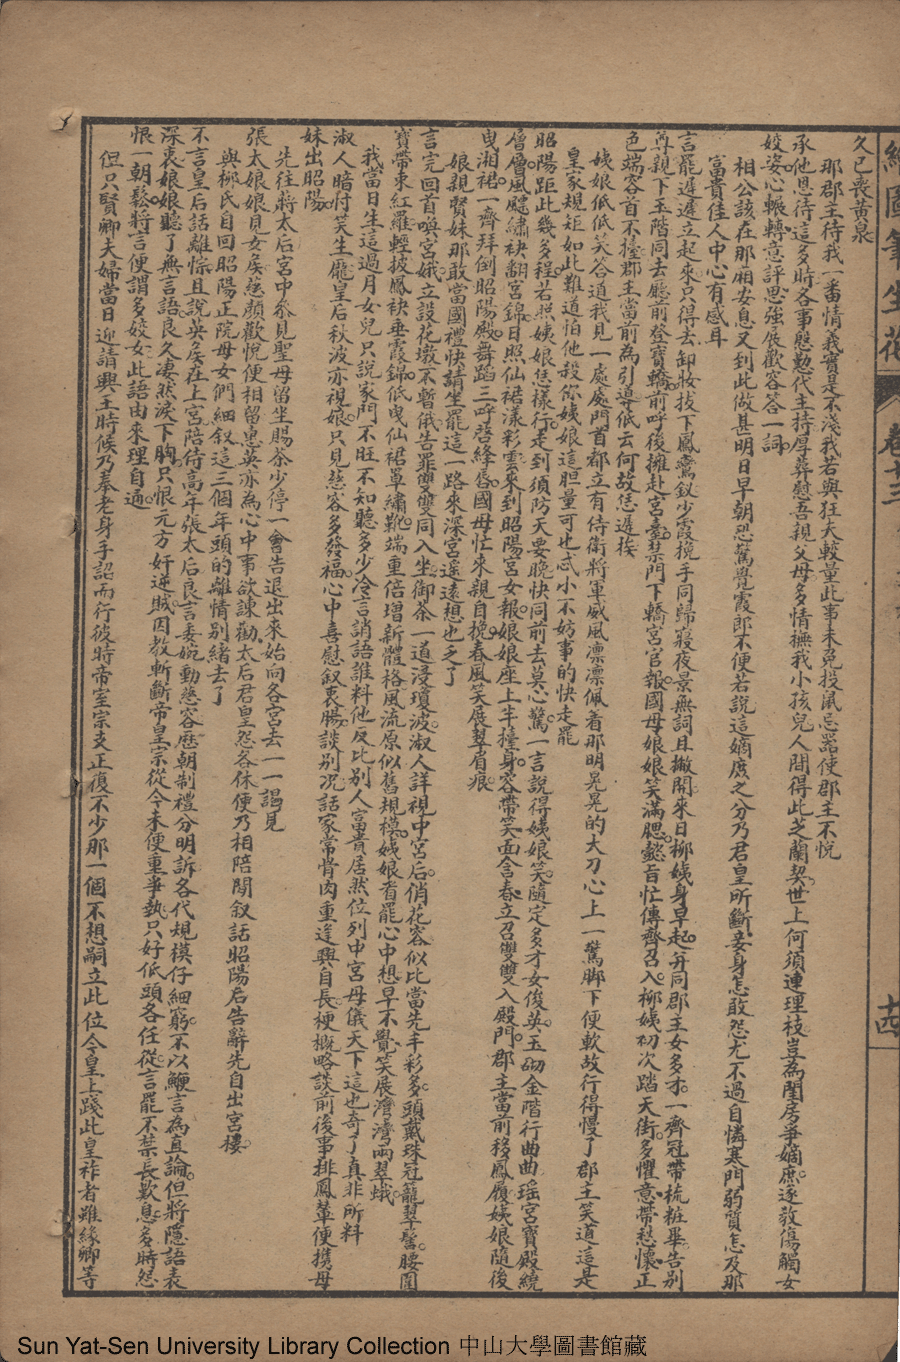 繪圖筆生花 卷廿三 十四
久已喪黃泉
那郡主待我一番情義實是不淺我若與狂夫較量此事未免投鼠忌器使郡主不悅
承他恩待這多時各事慇懃代主持厚葬慰吾親父母多情撫我小孩兒人間得此芝蘭契世上何須連理枝豈為閨房爭嫡庶遂教傷觸女
姣姿心輾轉意評思強展歡容答一詞
相公該在那廂安息又到此做甚明日早朝恐驚覺霞郎不便若說這嫡庶之分乃君皇所斷妾身怎敢怨尤不過自憐寒門弱質怎及那
富貴佳人中心有感耳
言罷遲遲立起來只得去卸妝拔下鳳鸞釵少霞挽手同歸寢夜景無詞且撇開來日柳姨身早起并同郡主女多才一齊冠帶梳粧畢告別
尊親下玉階同去廳前登寶轎前呼後擁赴宮臺禁門下轎宮官報國母娘娘笑滿腮懿旨忙傳齊召入柳姨初次踏天街多懼意帶愁懷正
色端容首不擡郡主當前為引導低云何故恁遲挨
姨娘低低笑答道我見一處處門首都立有侍衛將軍威風凛凛佩着那明晃晃的大刀心上一驚脚下便軟故行得慢了郡主笑道這是
皇家規矩如此難道怕他殺你姨娘這胆量可也忒小不妨事的快走罷
昭陽距此幾多程若照姨娘恁樣行走到須防天要晚快同前去莫心驚一言說得姨娘笑隨定多才女俊英玉砌金階行曲曲瑶宮寶殿繞
層層風飐繡袂翻宮錦日照仙裙漾彩雲來到昭陽宮女報娘娘座上半擡身容帶笑面含春立召雙雙入殿門郡主當前移鳳履姨娘隨後
曳湘裙一齊拜倒昭陽殿舞蹈三呼啓絳唇國母忙來親自挽春風笑展翠眉痕
娘親賢妹那敢當國禮快請坐罷這一路來深宮遥遠想也乏了
言完回首喚宮娥立設花墩不暫俄告罪雙雙同入坐御茶一道浸瓊波淑人詳視中宮后俏花容似比當先丰彩多頭戴珠冠籠翠髻腰圍
寶帶束紅羅輕披鳳袂垂霞錦低曳仙裙罩繡靴端重倍增新體格風流原似舊規模姨娘看罷心中想早不覺笑展灣灣兩翠蛾
我當日生這過月女兒只說家門不旺不知聽多少冷言誚語誰料他反比別人富貴居然位列中宮母儀天下這也奇了真非所料
淑人暗忖笑生龐皇后秋波亦視娘只見慈容多發福心中喜慰叙衷腸談別况話家常骨肉重逢興自長梗概略談前後事排鳳輦便携母
妹出昭陽
先往蔣太后宮中叅見聖母留坐賜茶少停一會告退出來始向各宮去一一謁見
張太娘娘見女矦慈顏歡悅便相留惠英亦為心中事欲諫勸太后君皇怨各休便乃相陪閒叙話昭陽后告辭先自出宮樓
與柳氏自回昭陽正院母女們細叙這三個年頭的離情別緒去了
不言皇后話離悰且說英矦在上宮陪侍高年張太后良言委婉動慈容歷朝制禮分明訴各代規模仔細窮不以鯁言為直論但將隱語表
深衷娘娘聽了無言語良久凄然淚下胸只恨元方奸逆賊因教斬斷帝皇宗從今未便重爭執只好低頭各任從言罷不禁長歎息多時怨
恨一朝鬆將言便謂多姣女此語由來理自通
但只賢卿夫婦當日迎請興王時候乃奉老身手詔而行彼時帝室宗支正復不少那一個不想嗣立此位今皇上踐此皇祚者雖緣卿等